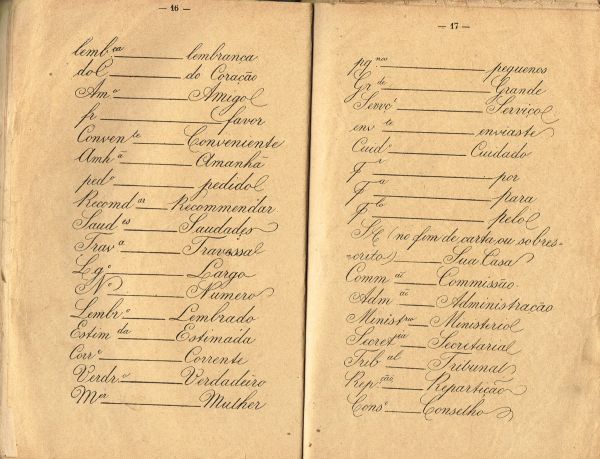 — 16 —
lemb.ça ______ lembrança
dol ______ do Coração
Am.o ______ Amigo
fr ______ favor
Conven.te ______ Conveniente
Amh.ã ______ Amanhã
ped.o ______ pedido
Recomd.ar ______ Recommendar
Saud.es ______ Saudades
Trav.a ______ Travessa
Lg.o ______ Largo
N.o ______ Numero
Lembr.o ______ Lembrado
Estim.da ______ Estimada
Corr.e ______ Corrente
Verdr.o ______ Verdadeiro
M.er ______ Mulher
— 17 —
pq.nos ______ pequenos
Gr.de ______ Grande
Servc.o ______ Serviço
env.te ______ enviaste
Cuid.o ______ Cuidado
______ por
______ para
______ pelo
(no fim de carta ou sobres-
crito) ______ Sua Casa
Comm.ão ______ Commissão
Adm.ão ______ Administração
Minist.rio ______ Ministerio
Secret.ria ______ Secretaria
Trib.al ______ Tribunal
Rep.ção ______ Repartição
Cons.o ______ Conselho